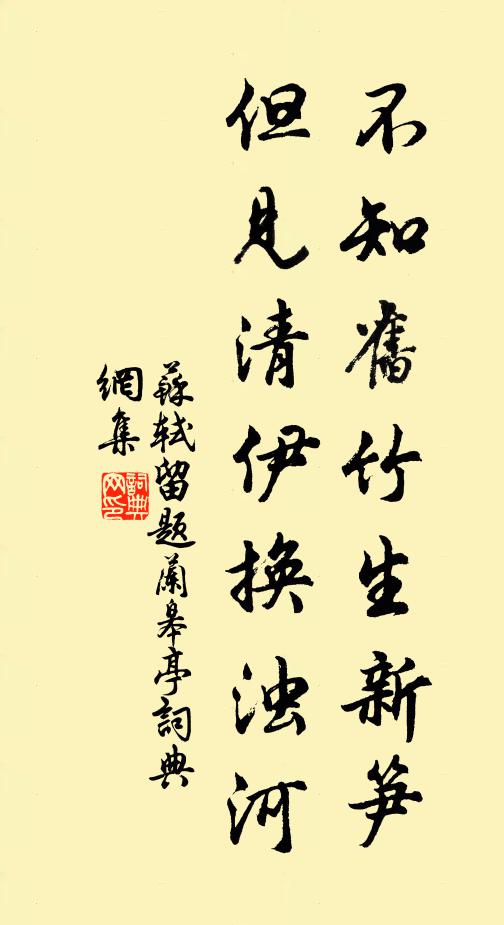 不知舊竹生新笋
但見清伊換浊河
蘇轼留題蘭皋亭詞典
網集
詞典
网印